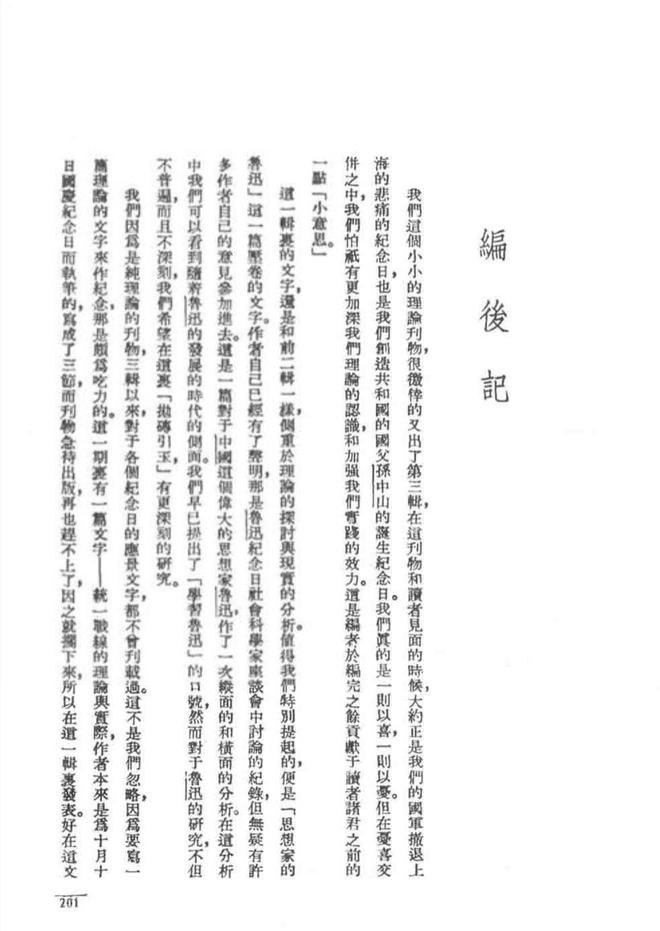 編後記
我們這個小小的理論刊物，很徼倖的又出了第三輯，在這刊物和讀者見面的時候，大約正是我們的國軍撤退上
海的悲痛的紀念日，也是我們創造共和國的國父孫中山的誕生紀念日。我們眞的是一則以喜，一則以憂。但在憂喜交
併之中，我們怕祇有更加深我們理論的認識，和加强我們實踐的效力。這是編者於編完之餘貢獻于讀者諸君之前的
一點「小意思。」
這一輯裏的文字，還是和前二輯一樣，側重於理論的探討與現實的分析。值得我們特別提起的，便是「思想家的
魯迅」這一篇壓卷的文字。作者自己已經有了聲明，那是魯迅紀念日社會科學家座談會中討論的紀錄，但無疑有許
多作者自己的意見參加進去。這是一篇對于中國這個偉大的思想家魯迅作了一次縱面的和橫面的分析。在這分析
中我們可以看到隨着魯迅的發展的時代的側面。我們早已提出了「學習魯迅」的口號，然而對于魯迅的研究，不但
不普遍，而且不深刻，我們希望在這裏「拋磚引玉」有更深刻的研究。
我們因爲是純理論的刊物，三輯以來，對于各個紀念日的應景文字，都不曾刊載過。這不是我們忽略，因爲要寫一
篇理論的文字來作紀念，那是頗爲吃力的。這一期裏有一篇文字——統一戰線的理論與實際，作者本來是爲十月十
日國慶紀念日而執筆的，寫成了三節，而刊物急待出版，再也趕不上了，因之就擱下來，所以在這一輯裏發表。好在這文
201